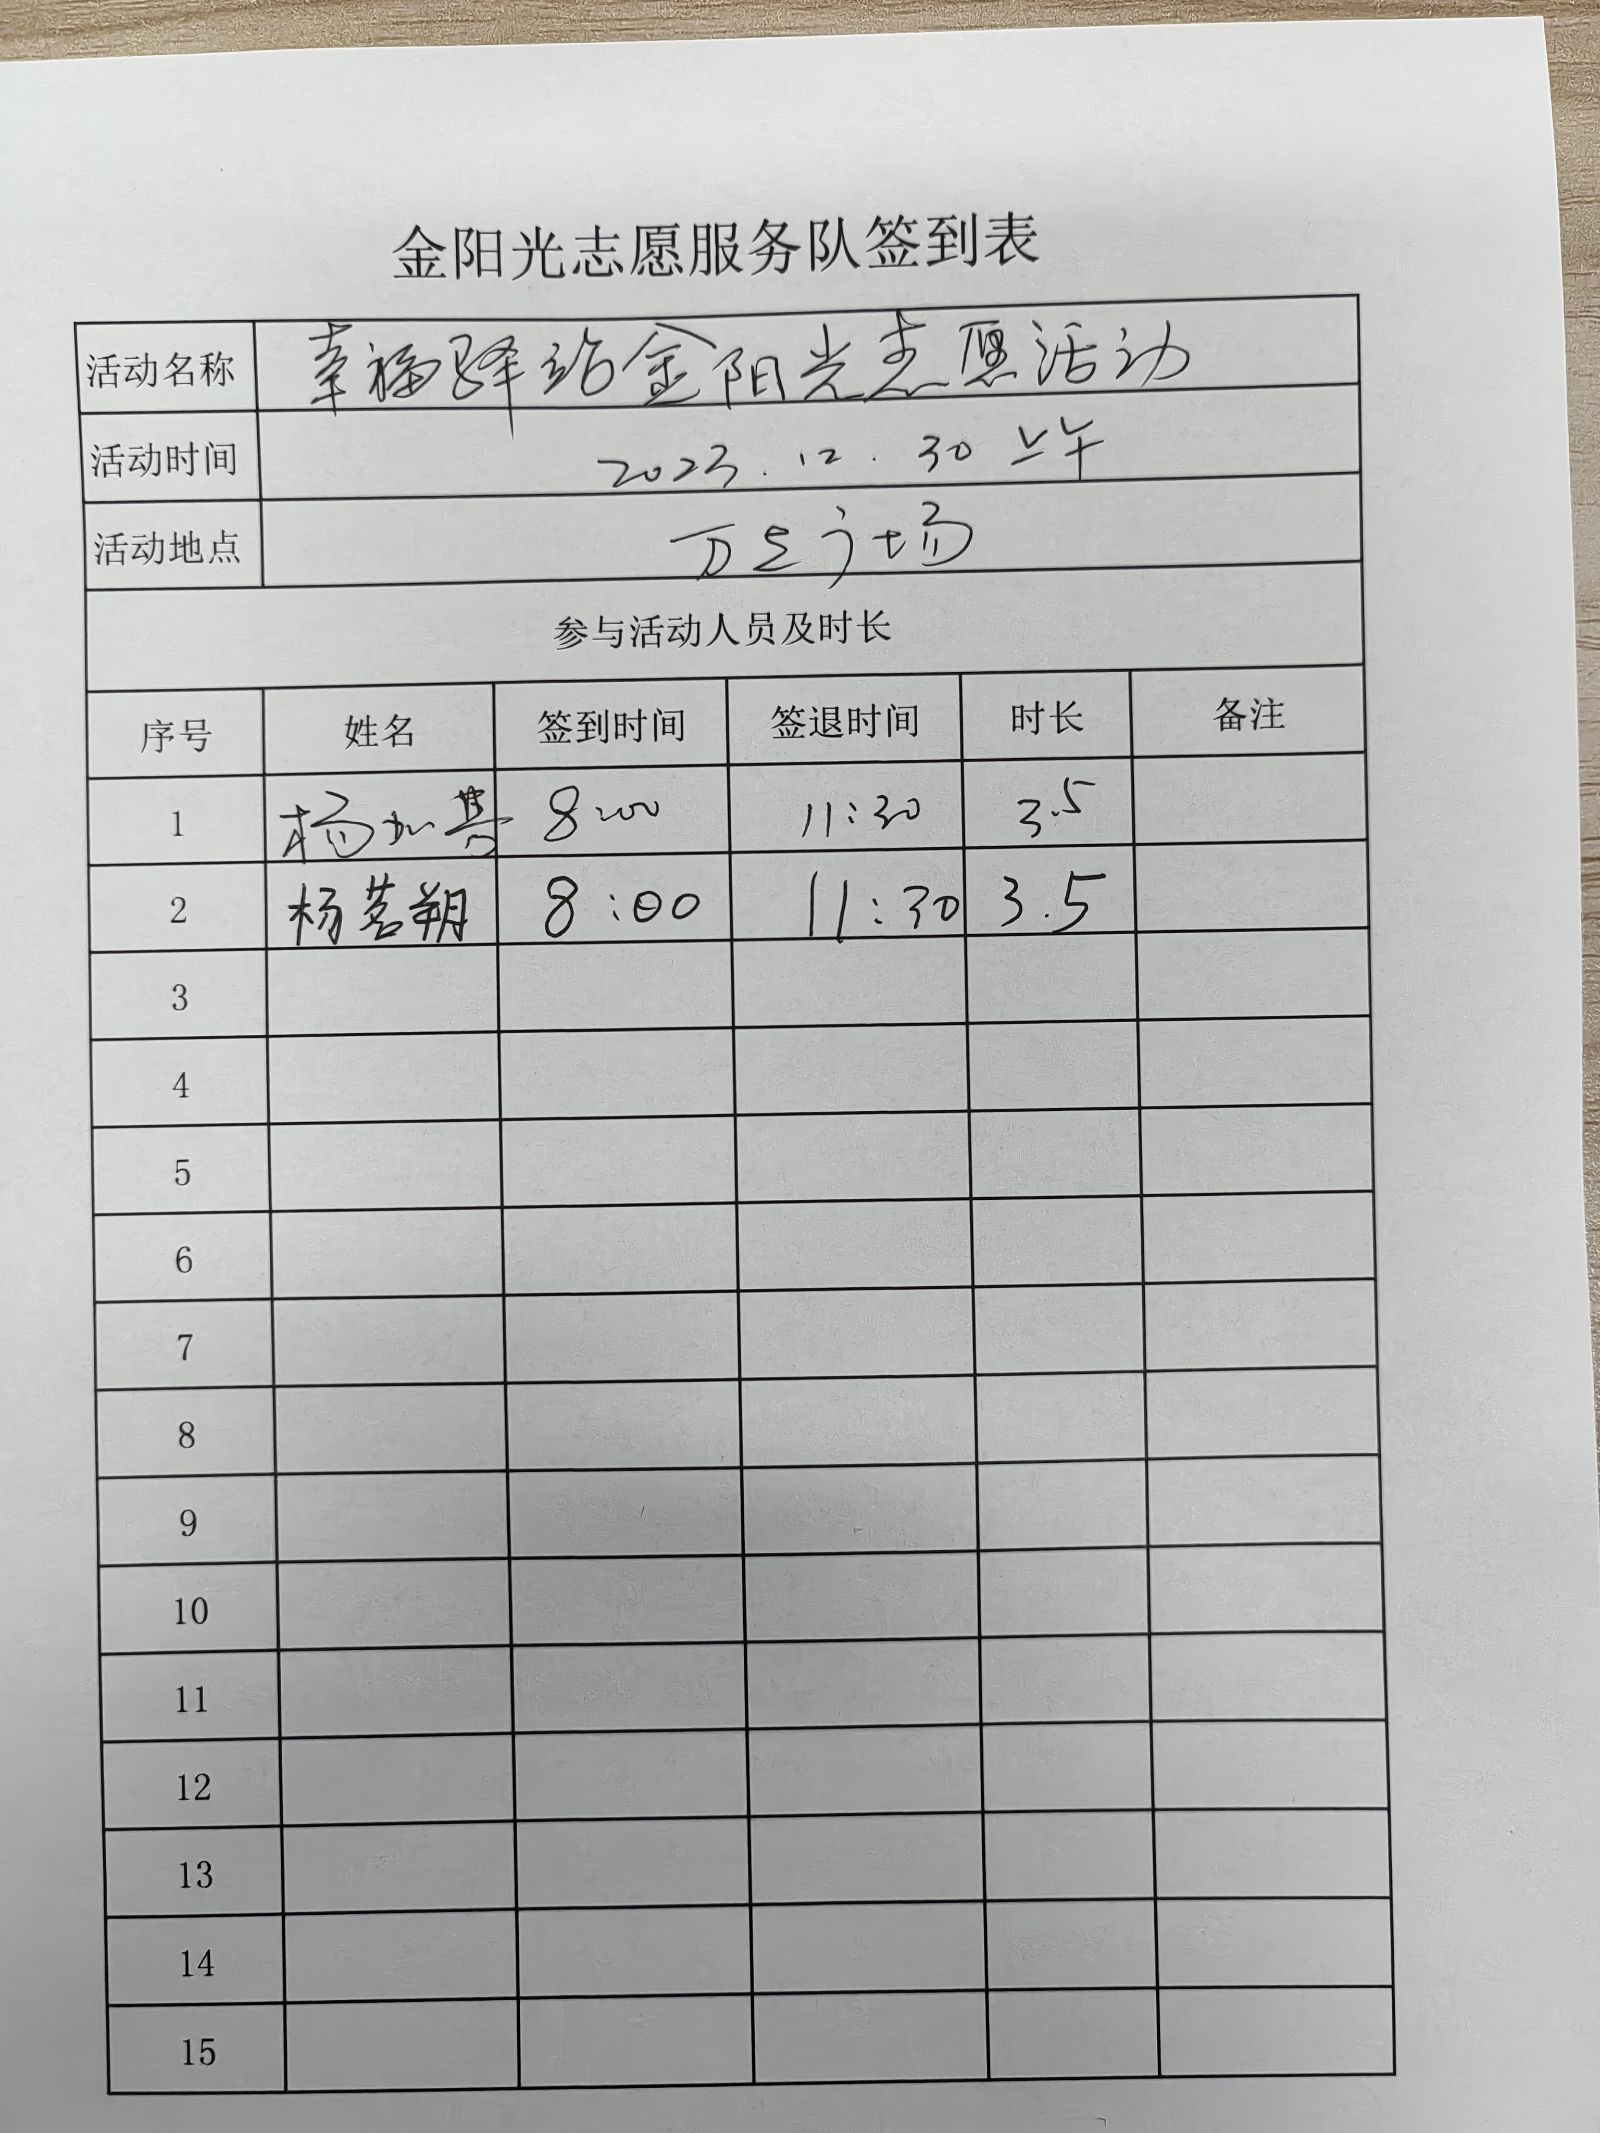 金阳光志愿服务队签到表
活动名称 幸福驿站金阳光志愿活动
活动时间 2023.12.30 上午
活动地点 万达广场
参与活动人员及时长
序号 姓名 签到时间 签退时间 时长 备注
1 杨 8:00 11:30 3.5
2 杨茗朔 8:00 11:30 3.5
3
4
5
6
7
8
9
10
11
12
13
14
15